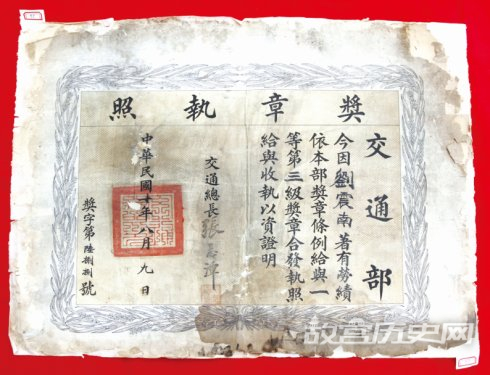 獎章執照
交通部
今因劉震南著有勞績
依本部獎章條例給與一
等第三級獎章合發執照
給與收執以資證明
交通總長張志潭
中華民國十年八月九日
獎字第陸捌捌號
故宫历史网